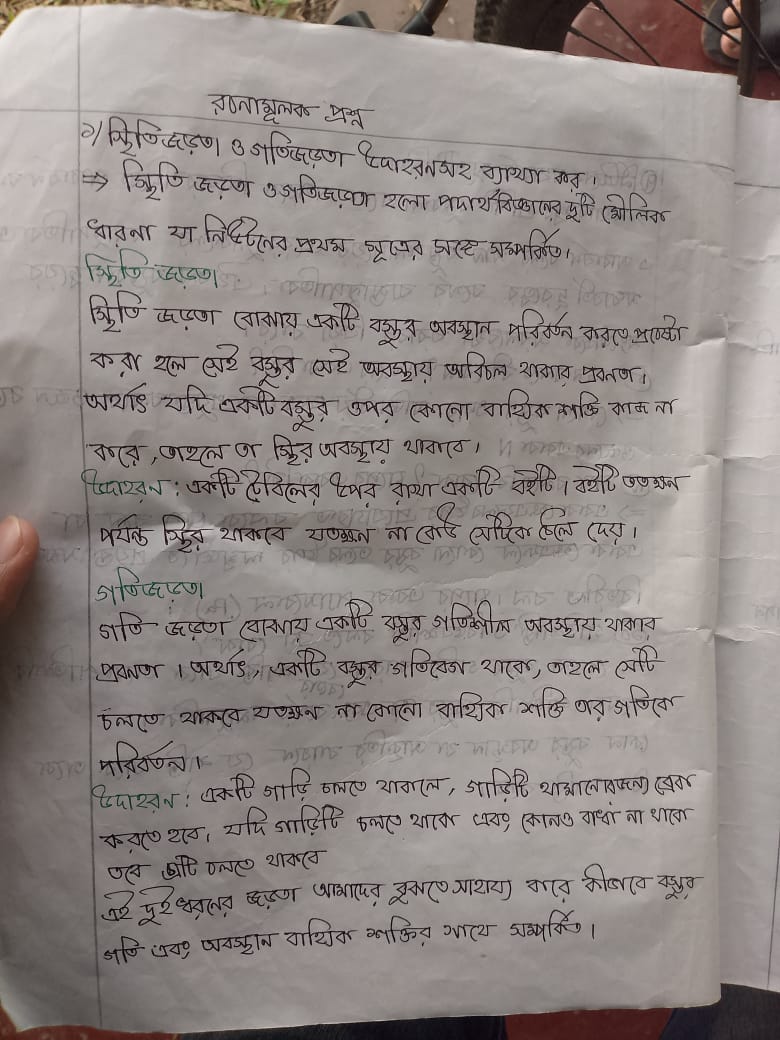 রচনামূলক প্রশ্ন
১/ স্থিতিজড়তা ও গতিজড়তা উদাহরনসহ ব্যাখ্যা কর।
⇒ স্থিতি জড়তা ও গতিজড়তা হলো পদার্থবিজ্ঞানের দুটি মৌলিক
ধারনা যা নিউটনের প্রথম সূত্রের সঙ্গে সম্পর্কিত।
স্থিতি জড়তা
স্থিতি জড়তা বোঝায় একটি বস্তুর অবস্থান পরিবর্তন করতে প্রচেষ্টা
করা হলে সেই বস্তুর সেই অবস্থায় অবিচল থাকার প্রবনতা।
অর্থাৎ যদি একটি বস্তুর ওপর কোনো বাহ্যিক শক্তি কাজ না
করে, তাহলে তা স্থির অবস্থায় থাকবে।
উদাহরন: একটি টেবিলের উপর রাখা একটি বইটি। বইটি ততক্ষন
পর্যন্ত স্থির থাকবে যতক্ষন না কেউ সেটিকে ঠেলে দেয়।
গতিজড়তা
গতি জড়তা বোঝায় একটি বস্তুর গতিশীল অবস্থায় থাকার
প্রবনতা। অর্থাৎ, একটি বস্তুর গতিবেগ থাকে, তাহলে সেটি
চলতে থাকবে যতক্ষন না কোনো বাহ্যিক শক্তি তার গতিকে
পরিবর্তন।
উদাহরন: একটি গাড়ি চলতে থাকলে, গাড়িটি থামানোরজন্য ব্রেক
করতে হবে। যদি গাড়িটি চলতে থাকে এবং কোনও বাধা না থাকে
তবে এটি চলতে থাকবে
এই দুই ধরনের জড়তা আমাদের বুঝতে সাহায্য করে কীভাবে বস্তুর
গতি এবং অবস্থান বাহ্যিক শক্তির সাথে সম্পর্কিত।